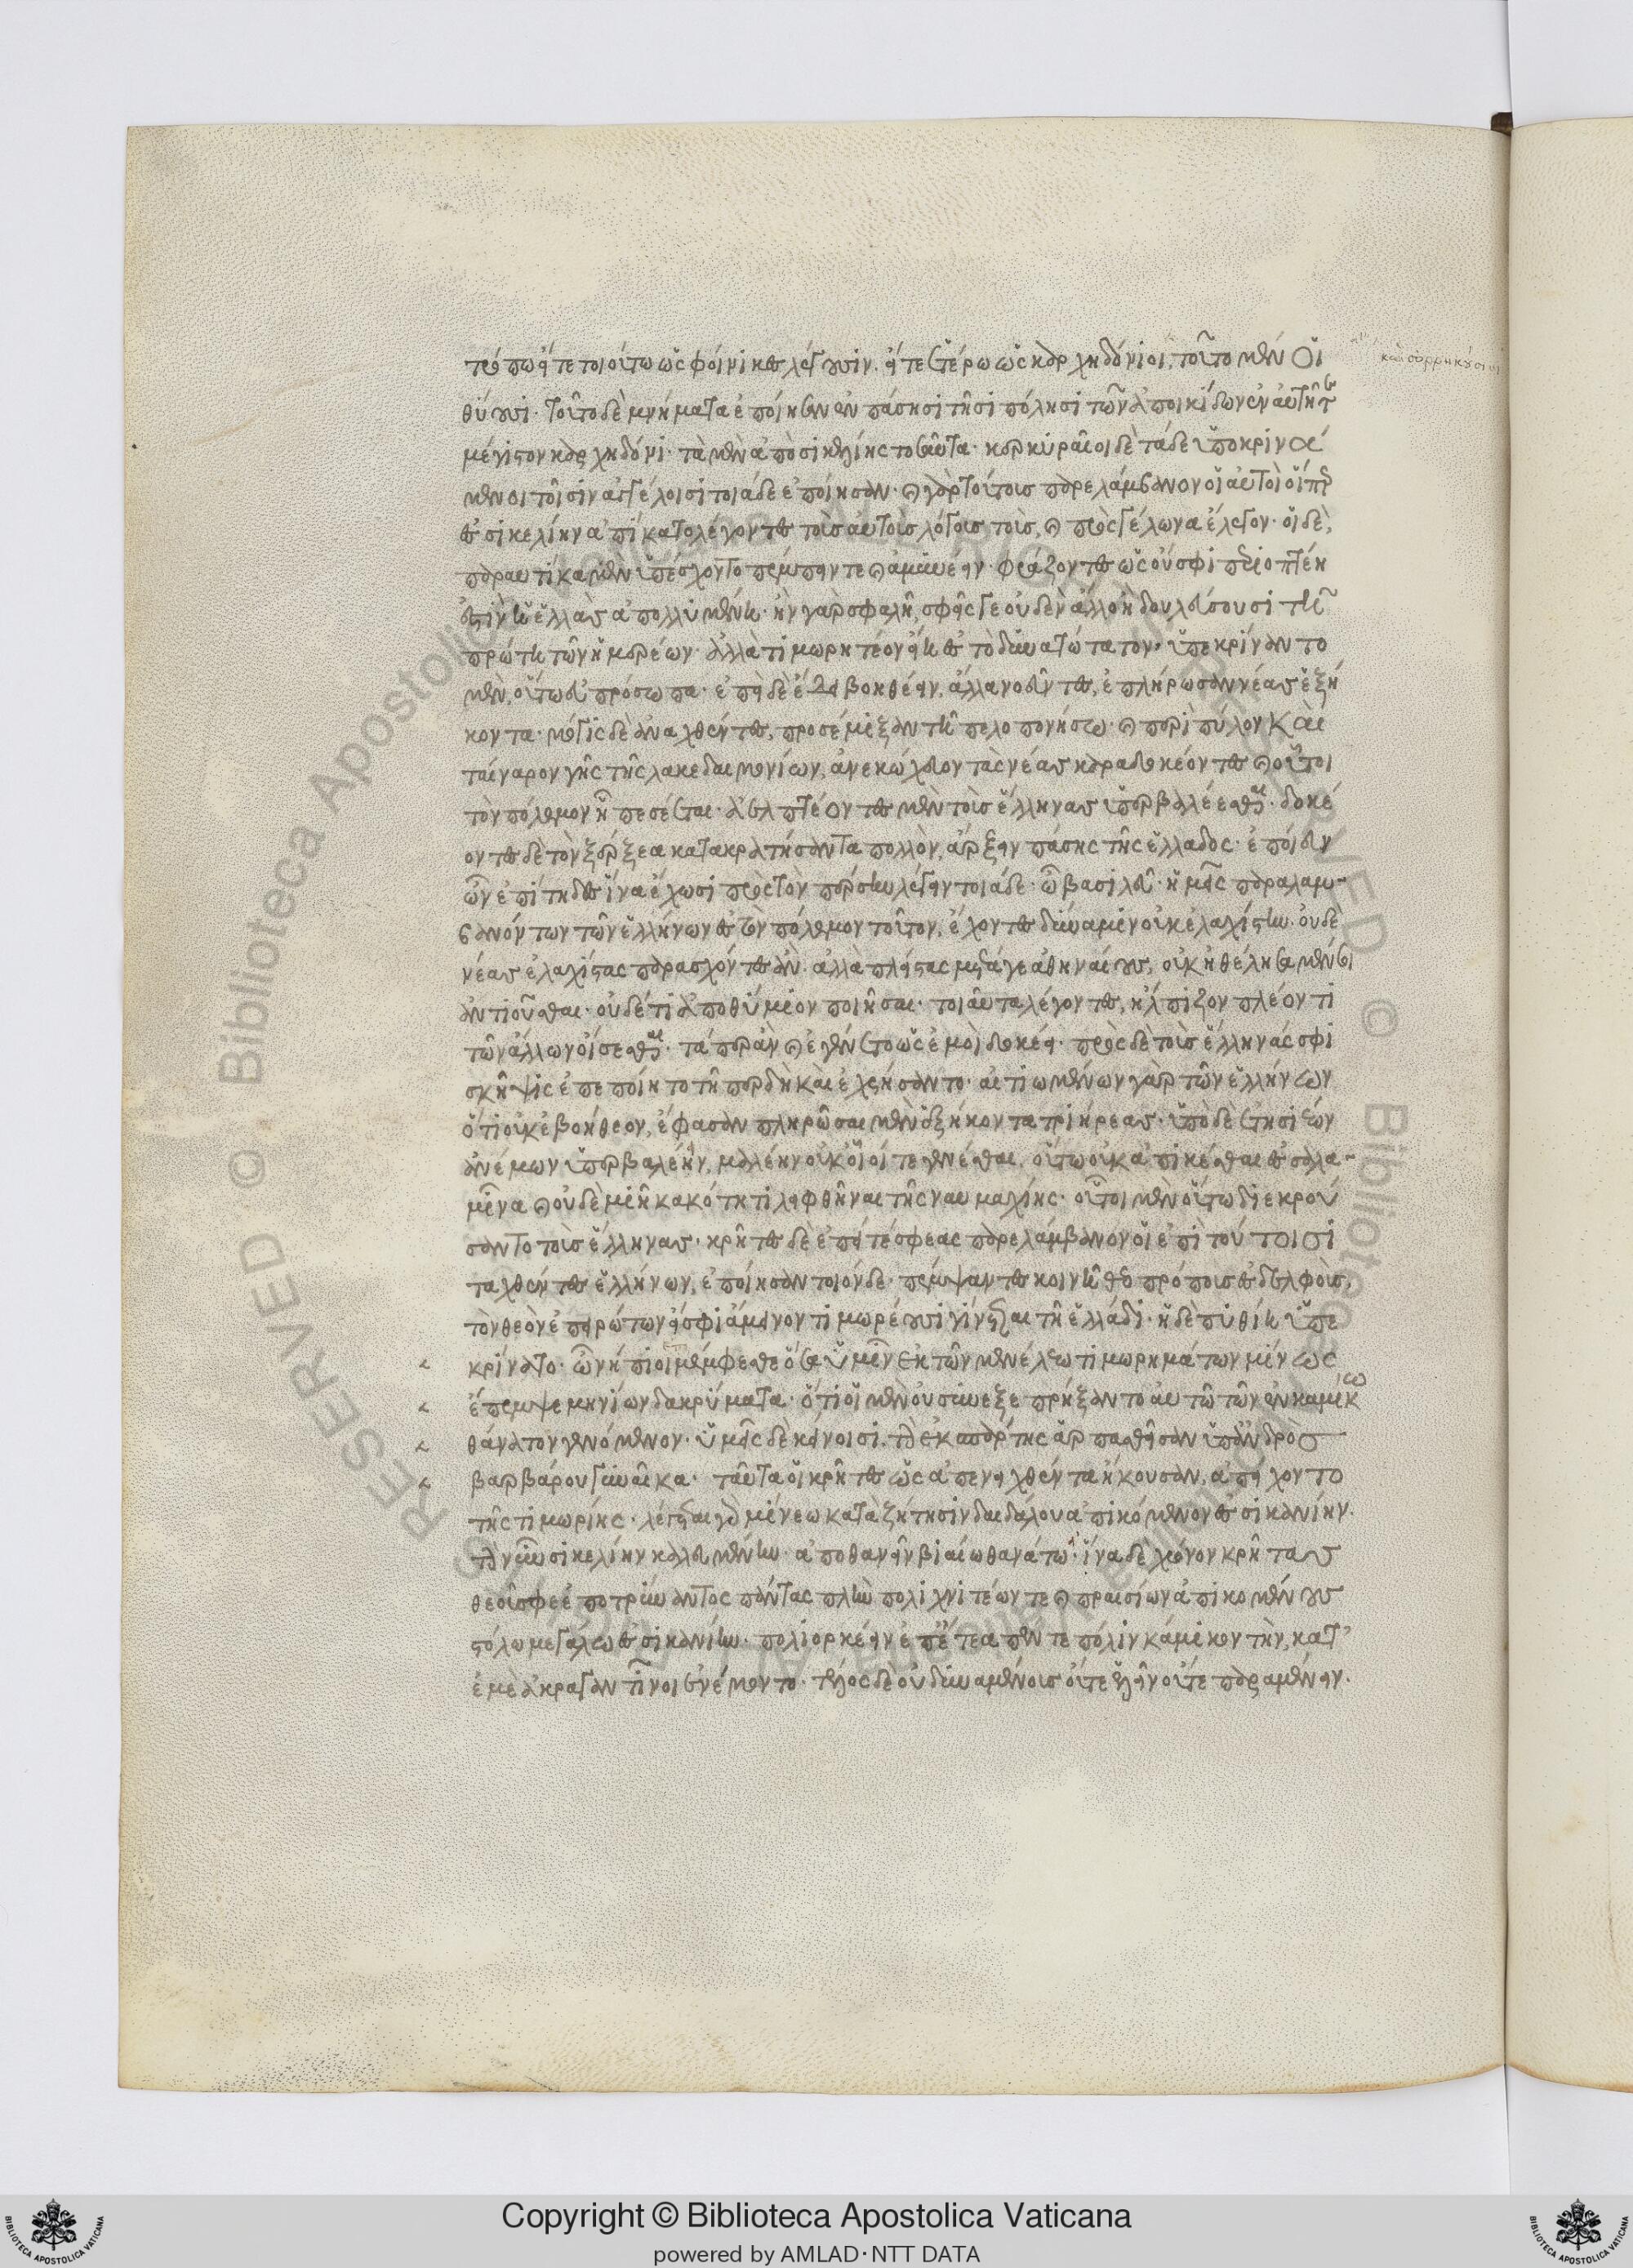 τρόπω εἴτε τοιούτω ὡς φοίνικες λέγουσιν. εἴτε ἑτέρω ὡς καρχηδόνιοι. τοῦτο μέν οἱ
καὶ συρηκούσιοι
θύουσι. τοῦτο δὲ μνήματα ἐποίησαν ἐν πάσησι τῆσι πόλησι τῶν ἀποικίδων ἐν αὐτῆ τε
μέγιστον καρχηδόνι. τὰ μὲν ἀπὸ σικελίης τοσαῦτα. κερκυραῖοι δὲ τάδε ὑποκρινά
μενοι τοῖσιν ἀγγέλοισι τοιάδε ἐποίησαν. καὶ γὰρ τούτους παρελάμβανον οἱ αὐτοὶ οἵπερ
ἐς σικελίην ἀπίκατο λέγοντες τοὺς αὐτοὺς λόγους τοὺς καὶ πρὸς γέλωνα ἔλεγον. οἱ δὲ,
παραυτίκα μὲν ὑπέσχοντο πέμπειν τε καὶ ἀμυνέειν. φράζοντες ὡς οὔ σφι περιοπτέη
ἐστὶν ἡ ἑλλὰς ἀπολλυμένη. ἢν γὰρ σφαλῆ, σφεῖς γε οὐδὲν ἄλλο ἢ δουλεύσουσι τῆ
πρώτη τῶν ἡμερέων. ἀλλὰ τιμωρητέον εἴη ἐς τὸ δυνατώτατον. ὑπεκρίναντο
μὲν, οὕτω εὐπρόσωπα. ἐπεὶ δὲ ἔδει βοηθέειν, ἄλλα νοεῦντες, ἐπλήρωσαν νέας ἑξή
κοντα. μόγις δὲ ἀναχθέντες, προσέμιξαν τῆ πελοπονήσω. καὶ περὶ πύλον καὶ
ταίναρον γῆς τῆς λακεδαιμονίων, ἀνεκώχευον τὰς νέας καραδοκέοντες καὶ οὗτοι
τὸν πόλεμον ἧ πεσέεται. ἀελπτέοντες μὲν τοὺς ἕλληνας ὑπερβαλέεσθαι. δοκέ
οντες δὲ τὸν ξέρξεα κατακρατήσαντα πολλὸν, ἄρξειν πάσης τῆς ἑλλάδος. ἐποίευν
ὦν ἐπίτηδες ἵνα ἔχωσι πρὸς τὸν πέρσην λέγειν τοιάδε. ὦ βασιλεῦ. ἡμέας παραλαμ
βανόντων τῶν ἑλλήνων ἐς τὸν πόλεμον τοῦτον, ἔχοντες δύναμιν οὐκ ἐλαχίστην. οὐδὲ
νέας ἐλαχίστας παρασχόντες ἂν. ἀλλὰ πλείστας μετά γε ἀθηναίους, οὐκ ἠθελήσαμέν σοι
ἀντιοῦσθαι. οὐδέ τι ἀποθύμιον ποιῆσαι. τοιαῦτα λέγοντες, ἤλπιζον πλέον τι
τῶν ἄλλων οἴσεσθαι. τά περ ἂν καὶ ἐγένετο ὡς ἐμοὶ δοκέει. πρὸς δὲ τοὺς ἕλληνάς σφι
σκῆψις ἐπεποίητο τῆ περ δὴ καὶ ἐχρήσαντο. αἰτιωμένων γὰρ τῶν ἑλλήνων
ὅτι οὐκ ἐβοήθεον, ἔφασαν πληρῶσαι μὲν ἑξήκοντα τριήρεας. ὑπὸ δὲ ἐτησιέων
ἀνέμων ὑπερβαλέειν, μαλέην οὐκ οἷοί τε γενέσθαι. οὕτω οὐκ ἀπικέσθαι ἐς σαλα
μῖνα καὶ οὐδεμιῆ κακότητι λειφθῆναι τῆς ναυμαχίης. οὗτοι μὲν οὕτω διεκρού
σαντο τοὺς ἕλληνας. κρῆτες δὲ ἐπεί τέ σφεας παρελάμβανον οἱ ἐπὶ τούτοισι
ταχθέντες ἑλλήνων, ἐποίησαν τοιόνδε. πέμψαντες κοινῆ θεοπρόπους ἐς δελφοὺς,
τὸν θεὸν ἐπειρώτων εἴ σφι ἄμεινον τιμωρέουσι γίνεται τῆ ἑλλάδι. ἡ δὲ πυθίη ὑπε
κρίνατο. ὦ νήπιοι μέμφεσθε ὅσα ὑμῖν ἐκ τῶν μενέλεω τιμωρημάτων μίνως
ἔπεμψε μηνίων δακρύματα. ὅτι οἱ μὲν οὐ συνεξεπρήξαντο αὐτῶ τῶν ἐν καμίκω
θάνατον γενόμενον. ὑμεῖς δὲ κείνοισι. τὴν ἐκ σπάρτης ἁρπασθεῖσαν ὑπ᾽ ἀνδρὸς
βαρβάρου γυναῖκα. ταῦτα οἱ κρῆτες ὡς ἀπενειχθέντα ἤκουσαν, ἀπείχοντο
τῆς τιμωρίης. λέγεται γὰρ μίνεω κατὰ ζήτησιν δαιδάλου ἀπικόμενον ἐς σικανίην.
τὴν νῦν σικελίην καλευμένην. ἀποθανεῖν βιαίω θανάτω. ἀνὰ δὲ χρόνον κρῆτας
θεοῦ σφεε ποτρύναντος πάντας πλὴν πολιχνιτέων τε καὶ πραισίων ἀπικομένους
στόλω μεγάλω ἐς σικανίην. πολιορκέειν ἐπ᾽ ἔτεα πέντε πόλιν κάμικον τὴν, κατ᾽
ἐμὲ ἀκραγαντῖνοι ἐνέμοντο. τέλος δὲ οὐ δυναμένους οὔτε ἑλεῖν οὔτε παραμένειν.